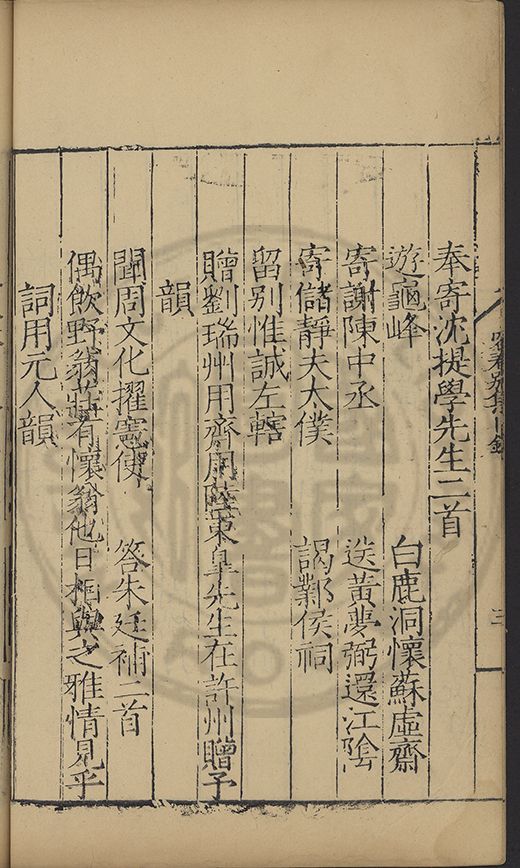 奉寄沈提學先生二首
遊龜峰　白鹿洞懷蘇虛齋
寄謝陳中丞　送黃夢弼還江陰
寄儲靜夫太僕　謁鄴侯祠
留別惟誠左轄
贈劉瑞州用齋用薩東皋先生在許州贈予
韻
聞周文化擢憲使　答朱廷補二首
偶飲野翁莊有懷翁他日相與之雅情見乎
詞用元人韻
三